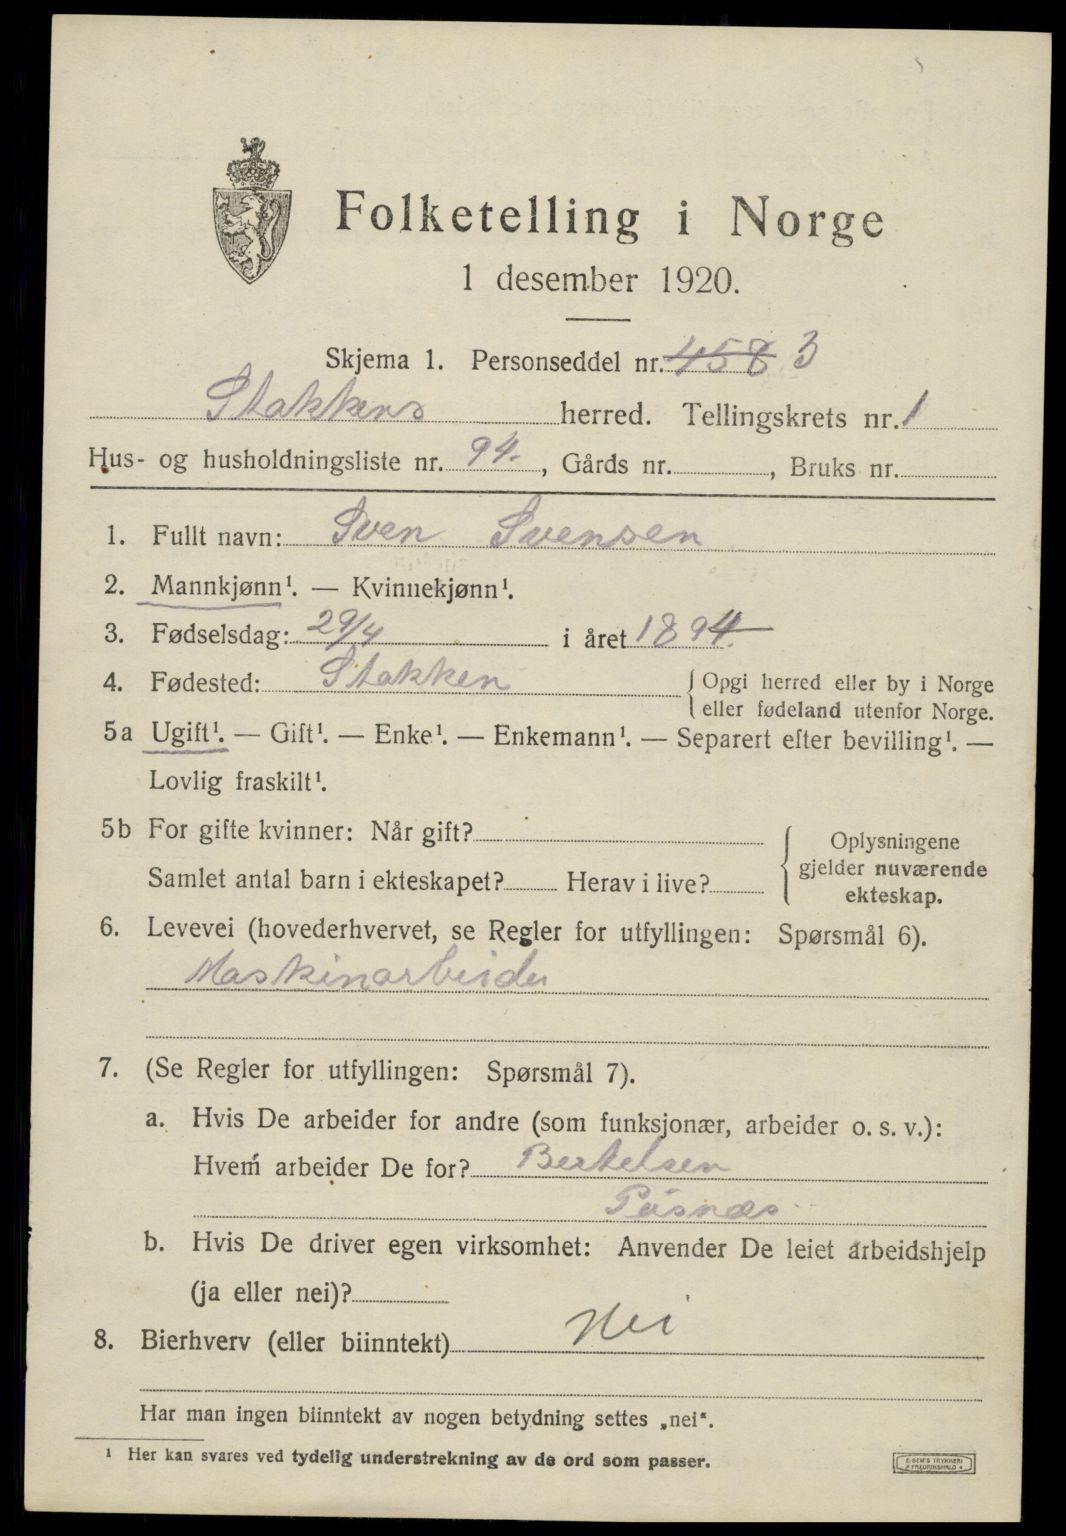 Folketelling i Norge
1 desember 1920.
Skjema 1. Personseddel nr. 458 3
Stokkens herred. Tellingskrets nr. 1
Hus- og husholdningsliste nr. 94. , Gårds nr. , Bruks nr.
1. Fullt navn: Sven Svensen
2. Mannkjønn¹. — Kvinnekjønn¹.
3. Fødselsdag: 29/4 i året 1894.
4. Fødested: Stokken { Opgi herred eller by i Norge
eller fødeland utenfor Norge.
5a Ugift¹. — Gift¹. — Enke¹. — Enkemann¹. — Separert efter bevilling¹. —
Lovlig fraskilt¹.
5b For gifte kvinner: Når gift?
Samlet antal barn i ekteskapet? Herav i live?
{ Oplysningene
gjelder nuværende
ekteskap.
6. Levevei (hovederhvervet, se Regler for utfyllingen: Spørsmål 6).
Maskinarbeider
7. (Se Regler for utfyllingen: Spørsmål 7).
a. Hvis De arbeider for andre (som funksjonær, arbeider o. s. v.):
Hvem arbeider De for? Bertelsen
Pusnæs
b. Hvis De driver egen virksomhet: Anvender De leiet arbeidshjelp
(ja eller nei)?
8. Bierhverv (eller biinntekt) Nei
Har man ingen biinntekt av nogen betydning settes „nei".
¹ Her kan svares ved tydelig understrekning av de ord som passer.